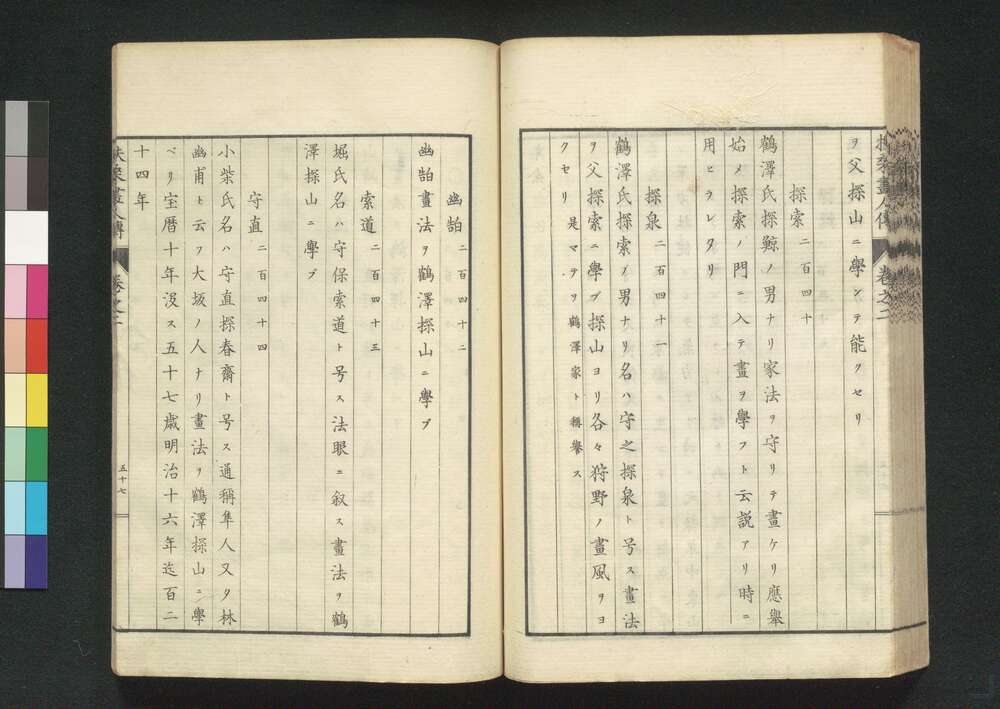 扶桑畫人傳 卷之二
ヲ父探山ニ學ンテ能クセリ
探索 二百四十
鶴澤氏探鯨ノ男ナリ家法ヲ守リテ畫ケリ應舉
始メ探索ノ門ニ入テ畫ヲ學フト云説アリ時ニ
用ヒラレタリ
探泉 二百四十一
鶴澤氏探索ノ男ナリ名ハ守之探泉ト号ス畫法
ヲ父探索ニ學ブ探山ヨリ各々狩野ノ畫風ヲヨ
クセリ 是マデヲ鶴澤家ト稱譽ス
幽皞 二百四十二
幽皞畫法ヲ鶴澤探山ニ學ブ
索道 二百四十三
堀氏名ハ守保索道ト号ス法眼ニ叙ス畫法ヲ鶴
澤探山ニ學ブ
守直 二百四十四
小柴氏名ハ守直探春齋ト号ス通稱隼人又タ林
幽甫ト云フ大坂ノ人ナリ畫法ヲ鶴澤探山ニ學
ベリ宝暦十年没ス五十七歳明治十六年迄百二
十四年
扶桑畫人傳 卷之二 五十七